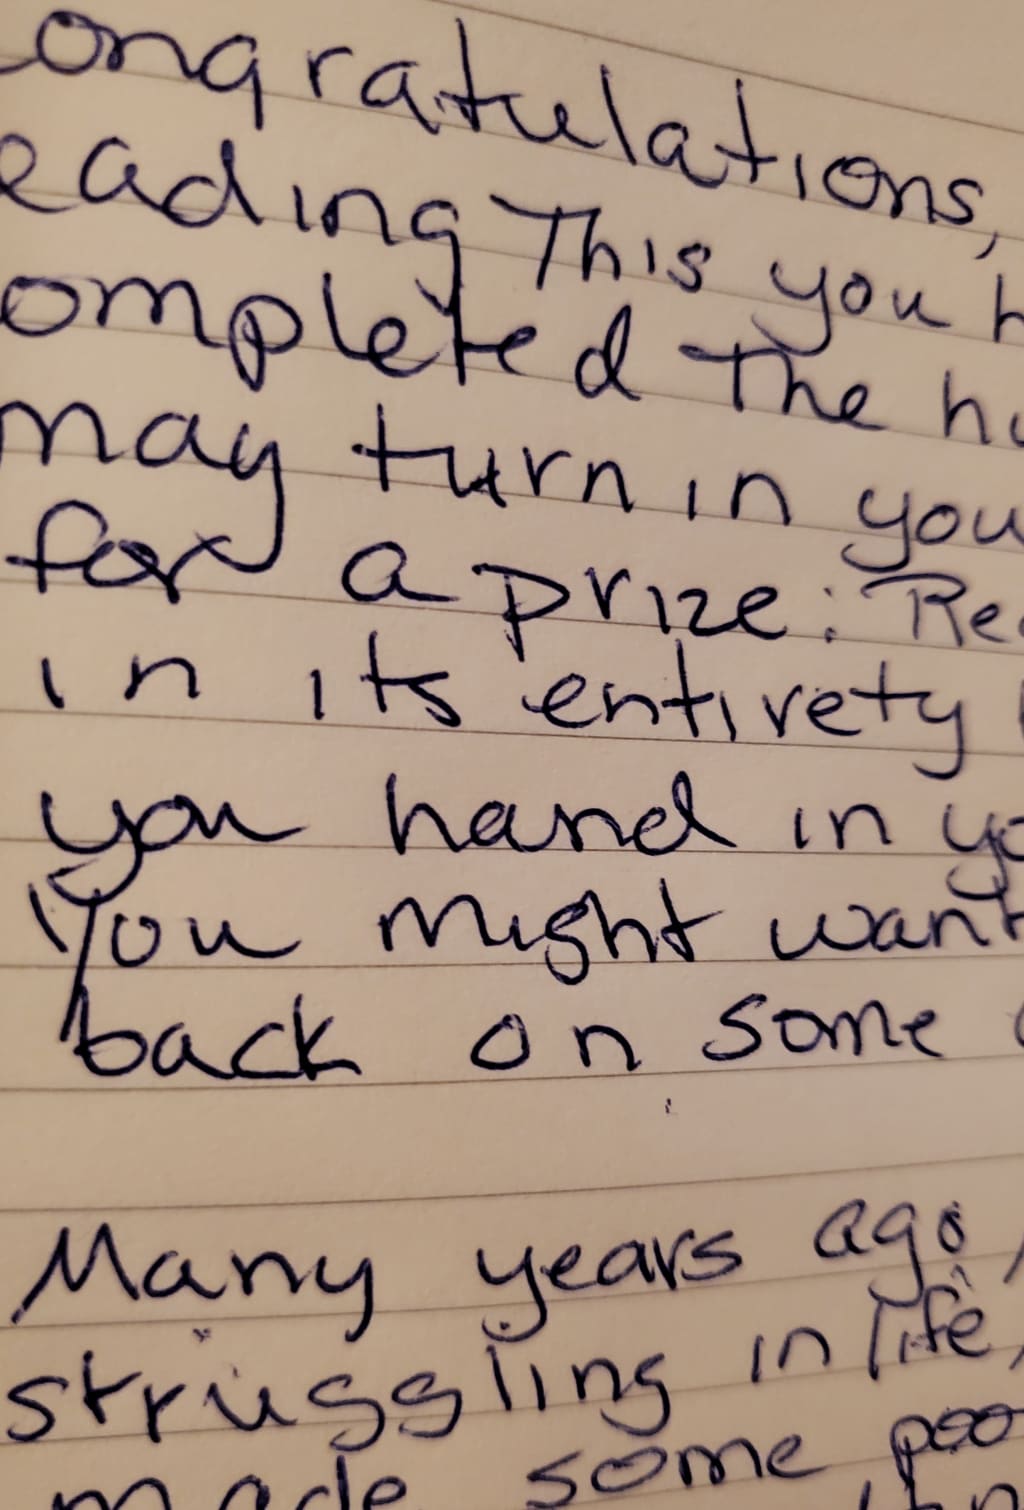 ongratulations,
eading This you h
ompleted The hu
may turn in you
for a prize: Re
in its entirety
you hand in yo
You might want
back on some
Many years ago,
struggling in life,
made some poo